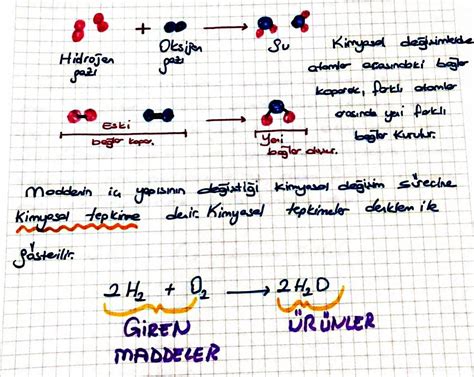 +
Hidrojen gazı
Oksijen gazı
Su
Kimyasal değişimlerde
atomlar arasındaki bağlar
koparak, farklı atomlar
arasında yeni farklı
bağlar kurulur.
Eski
bağlar kopar.
Yeni
bağlar oluşur.
Maddenin iç yapısının değiştiği kimyasal değişim sürecine
kimyasal tepkime denir. Kimyasal tepkimeler denklem ile
gösterilir.
2H₂ + O₂ → 2H₂O
GİREN MADDELER
ÜRÜNLER